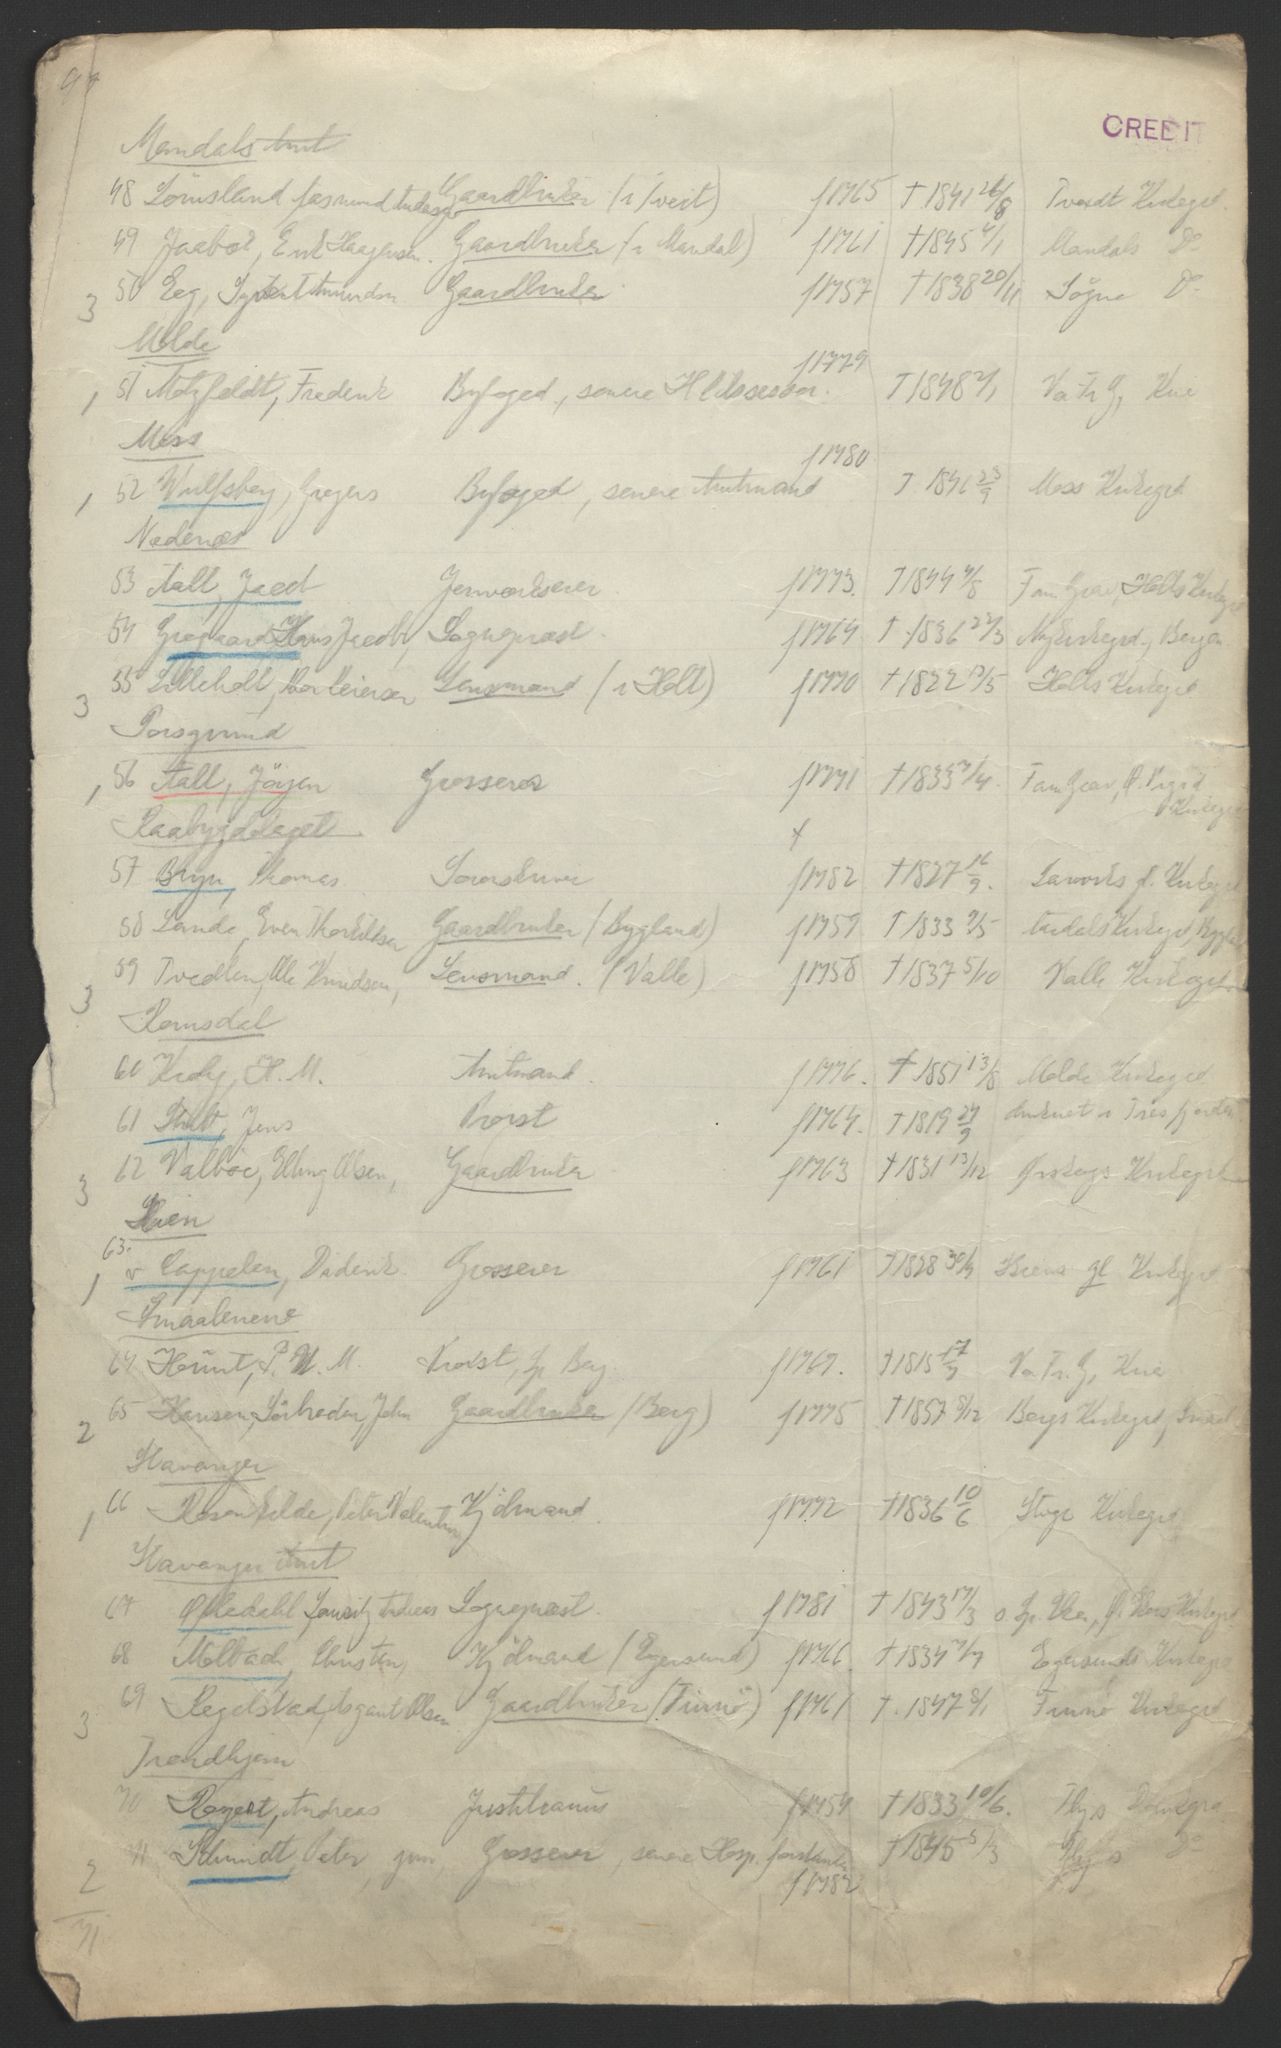 CREDIT
Mandals Amt
48 Lömsland Gaardbruker (i Tveit) f1765 †1841 26/8 Tvedt Kirkegd.
49 Jaabæk, Erik Haagensen. Gaardbruker (i Mandal) f1761 †1845 Mandals Do
50 Eeg, Syvert Amundsen Gaardbruker f1757 †1838 20/11 Søgne Do
3
Molde
1 51 Motzfeldt, Frederik Byfoged, senere H Assessor. f1779 †1848 2/1 Va Fr G, Kria
Moss
1 52 Wulfsberg, Gregers Byfoged, senere Amtmand f1780 † 1846 Moss Kirkegd
Nedenæs
53 Aall, Jacob Jernværkseier f1773. †1844 4/8 Fam Grav, Holts Kirkegd
54 Grøgaard Hans Jacob, Sogneprest. f1764 † 1836 Bergen
55 Lilleholt, Thor Reiersen Lensmand (i Holt) f1770 †1822 Holts Kirkegd
3
Porsgrund
1 56 Aall, Jörgen Grosserer f1771 †1833 Fam Grav,
Kirkegd
Raabygdelaget
57 Bryn, Thomas Sorenskriver f1782 †1827 16/9. Larviks gl. Kirkegd
58 Lande, Even Thorkildsen Gaardbruker (Bygland) f1759 †1833 Aardals Kirkegd, Bygland
59 Tvedten, Ole Knudsen, Lensmand. (Valle) f1758 †1837 5/10 Valle Kirkegd
3
Romsdal
60 Krohg, H. M. Amtmand. f1776. †1851 13/8 Molde Kirkegd
61 Stub, Jens Provst f1764. †1819 druknet i Tresfjorden
62 Valbøe, Elling Olsen, Gaardbruker f1763 †1831 13/12 Ørskogs Kirkegd
3
Skien
63.
1 v Cappelen, Diderik Grosserer f1761 †1828 Skiens gl Kirkegd
Smaalenene
64 Hount, P. W. M. Provst, Sp Berg f1767. †1815 Va Fr. G, Kria
65 Hansen Sörbröden, John Gaardbruker (Berg) f1775 †1857 8/12 Bergs Kirkegd,
2
Stavanger
1 66 Rosenkilde, Peter Valentin Kjömand. f1772 †1836 10/6 Kirkegd
Stavanger Amt
67 Oftedahl Lauritz Andreas Sogneprest. f1781 †1843 17/3 Sp. Eker,
68 Molbach, Christen, Kjömand (Egersund) f1766 †1834 Egersunds Kirkegd
69 Regelstad, Asgaut Olsen Gaardbruker (Finnö) f1761 † 1847 8/1 Finnö Kirkegd
3
Trondhjem
70 Rogert, Andreas Justitiarius f1754 †1833 10/6. Thjs Domkegd
71 Schmidt, Peter jun, Grosserer, senere Hosp. forstander †1845 5/3 Thjs Do
f1782
2
71